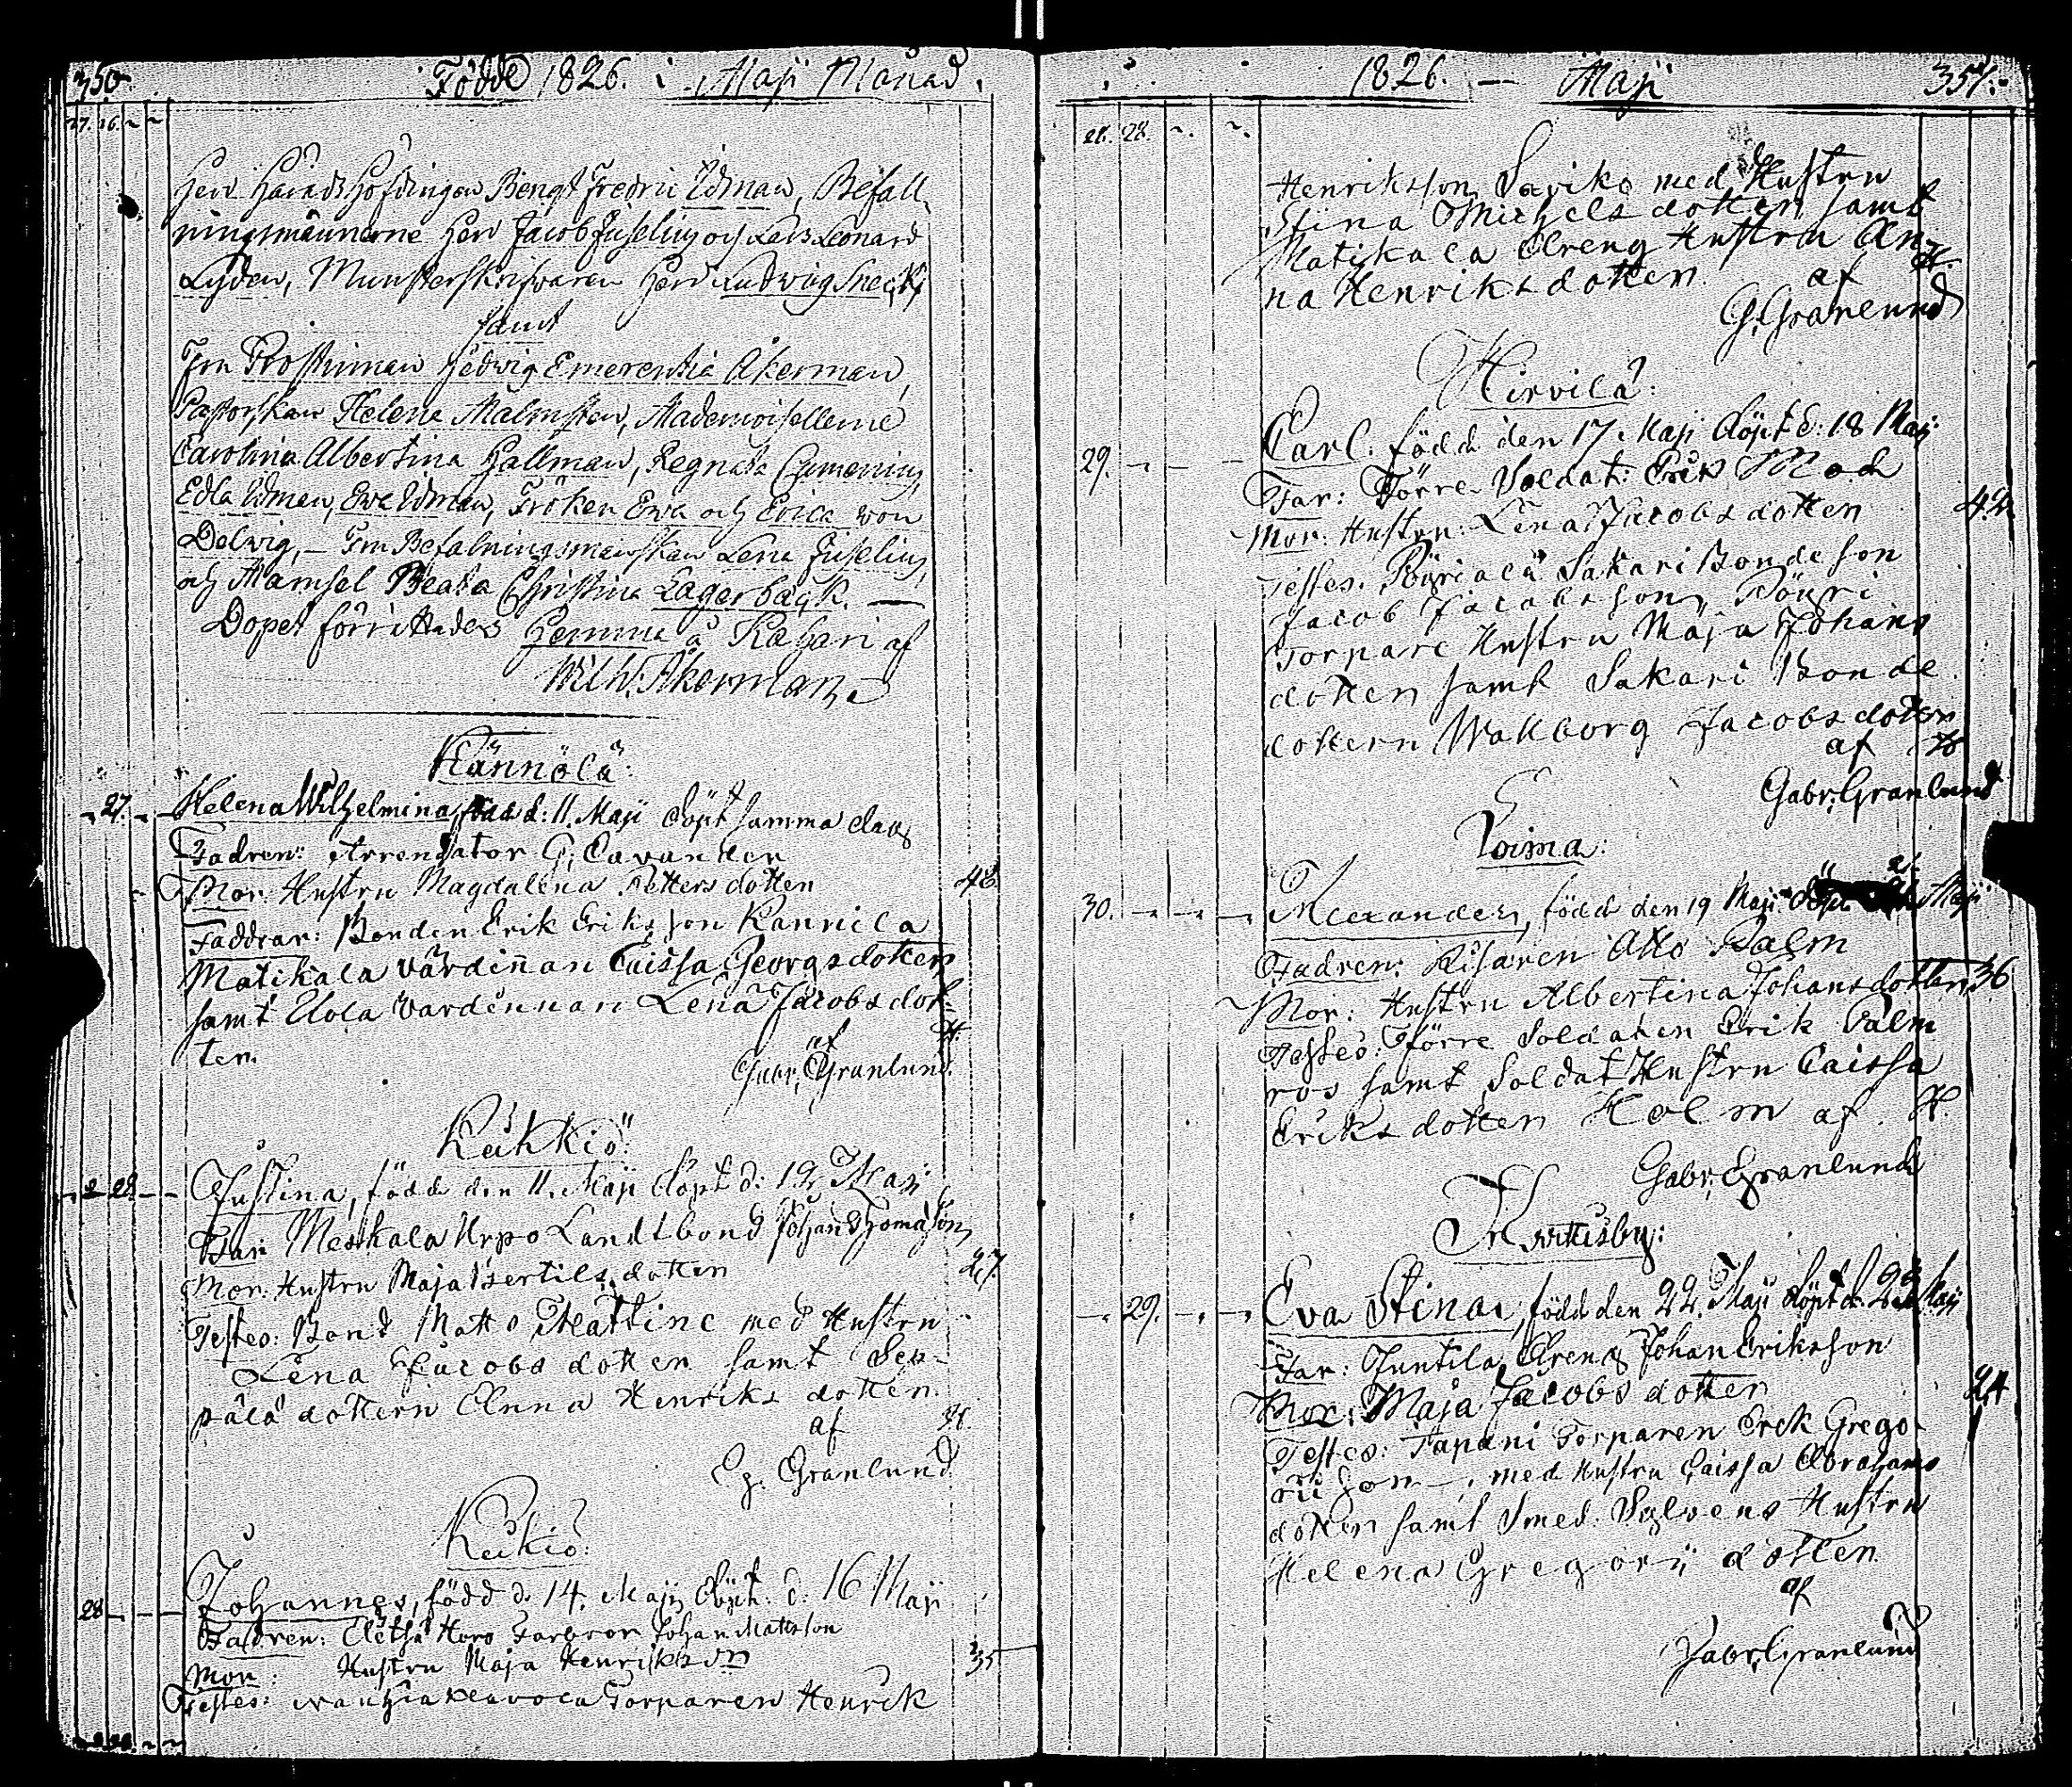 350. Födde 1826. i Maji Månad.
27. 26. ~ ~
Herr Häradshöfdingen Bengt Fredric Idman, Befall-
ningsmännerne Herr Jacob Juselius och Lars Leonard
Lydén, Munsterskrifvaren Herr Ludvig Sneck
samt
Fru Prostinnan Hedvig Emerentia Åkerman,
Pastorskan Helena Malmsten, Mademoisellerne
Carolina Albertina Hallman, Regnata Cumenius,
Edla Idman, Eva Idman, Fröken Ewa och Erica von
Delwig, — Fru Befalningsmanskan Lena Juselius,
och Mamsel Beata Christina Lagerbäck. —
Dopet förrättades hemma å Rahari af
Wilh. Åkerman.
Kännölä:
27. Helena Wilhelmina, född d: 11. Maji döpt samma dag
Fadren: Arrendator G. Cavander
Mor: Hustru Magdalena Petters dotter 48.
Faddrar: Bonden Erik Eriksson Kannila
Matikala värdinnan Caissa Georgsdotter
samt Uola värdinnan Lena Jacobs dot-
ter. af
Gabr. Granlund.
Keikkiö:
2 28 Justina, född den 11. Maji döpt d: 12 Maji
Far: Meskala Urpo Landtbond Johan Thomasson
Mor: Hustru Maja Bertils dotter 27.
Testes: Bond Matts Mattinc med Hustru
Lena Jacobs dotter samt Sep-
pälä dottern Anna Henriks dotter.
af H.
G. Granlund.
Keikiö:
28 Johannes, född d. 14. Maji döpt. d. 16 Maji
Fadren: Farbror Johan Mattsson
Mor: Hustru Maja Henriksson 35
Testes: Torparen Henrik
1826. — Maji 351.
28. 28. ~. ~.
Henriksson Saviko med Hustru
Stina Michels dotter samt
Matikala dreng Hustru An-
na Henriks dotter. af H.
G. Granlund
Hirvilä:
29. Carl. född den 17. Maji döpt d: 18 Maji
Far: Förre Soldat: Erik Mod
Mor: Hustru: Lena Jacobs dotter 42
Testes. Pöyriälä Sakari Bonde son
Jacob Jacobsson, Pöyri
Torpare Hustru Maja Johans
dotter samt Sakari Bonde
dottern Walborg Jacobs dotter
af H
Gabr. Granlund
Loima:
30. Alexander, född den 19 Maji döpt 21 Maji
Fadren: Risaren Otto Palm
Mor: Hustru Albertina Johans dotter, 36
Testes: Förre Soldaten Erik Palm
ros samt Soldat Hustru Caissa
Eriks dotter Holm af H.
Gabr. Granlund
29. Eva Stina, född den 22. Maji döpt d. 22 Maji
Far: Juntila dreng Johan Eriksson
Mor: Maja Jacobs dotter 24
Testes: Tapani Torparen Erik Grego-
rii son, med Hustru Caissa Abrahams
dotter samt Smed. Sylvens Hustru
Helena Gregorii dotter.
af
Gabr. Granlund